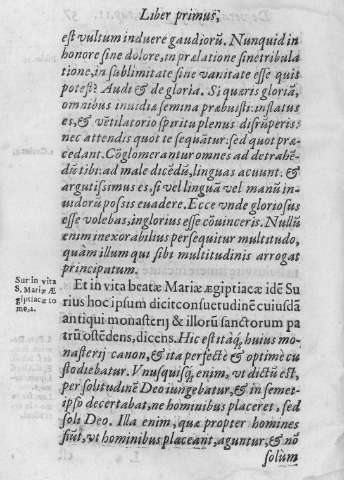 Liber primus,
est vultum induere gaudiorũ. Nunquid in
honore sine dolore, in prælatione sine tribula
tione, in sublimitate sine vanitate esse quis
potest? Audi & de gloria. Si quæris gloriã,
omnibus inuidiæ semina præbuisti: inflatus
es, & vẽtilatorio spiritu plenus disrũperis:
nec attendis quot te sequãtur: sed quot præ
cedant. Cõglomerantur omnes ad detrahẽ-
dũ tibi: ad male dicẽdũ, linguas acuunt: &
argutissimus es, si vel linguã vel manũ in-
uidorũ possis euadere. Ecce vnde gloriosus
esse volebas, inglorius esse cõuinceris. Nullũ
enim inexorabilius persequitur multitudo,
quàm illum qui sibi multitudinis arrogat
principatum.
Sur in vita
S. Mariæ Æ
giptiacæ to
me, 2.
Et in vita beatæ Mariæ ægiptiacæ idẽ Su
rius hoc ipsum dicit consuetudinẽ cuiusdã
antiqui monasterij & illorũ sanctorum pa
trũ ostẽdens, dicens. Hic est itáq, huius mo-
nasterij canon, & ita perfectè & optimè cu
stodiebatur. Vnusquisq, enim, vt dictũ est,
per solitudinẽ Deo iungebatur, & in semet-
ipso decertabat, ne hominibus placeret, sed
soli Deo. Illa enim, quæ propter homines
fiũt, vt hominibus placeant, aguntur, & nõ
solùm